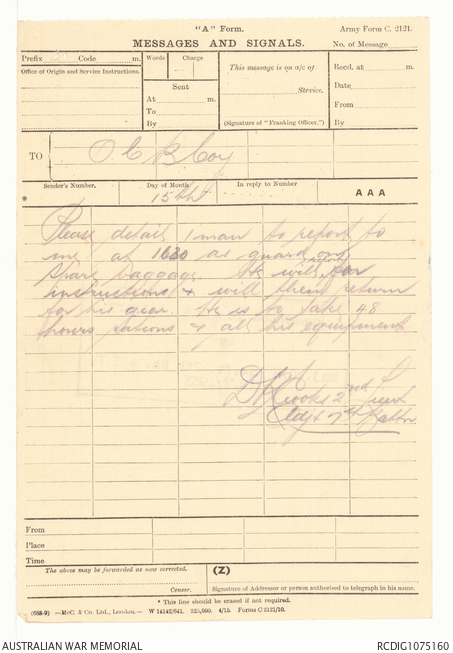 "A" Form.
Army Form C. 2121.
MESSAGES AND SIGNALS.
No. of Message
Prefix Code m.
Words Charge
This message is on a/c of
Recd. at m.
Office of Origin and Service Instructions.
Sent
Service.
Date
At m.
To
From
By
(Signature of "Franking Officer.")
By
TO
O C B Coy
Sender's Number.
Day of Month
In reply to Number
AAA
*
15th
Please detail 1 man to report to
me at 1630 as guard on
spare baggage. He will report for
instructions & will then return
for his gear. He is to take 48
hours rations & all his equipment
2nd Lieut
Adjt 7th Battn
From
Place
Time
The above may be forwarded as now corrected.
(Z)
Censor.
Signature of Addressor or person authorised to telegraph in his name.
* This line should be erased if not required.
(688-9) —McC. & Co. Ltd., London.— W 14142/641. 225,000. 4/15. Forms C 2121/10.
AUSTRALIAN WAR MEMORIAL
RCDIG1075160